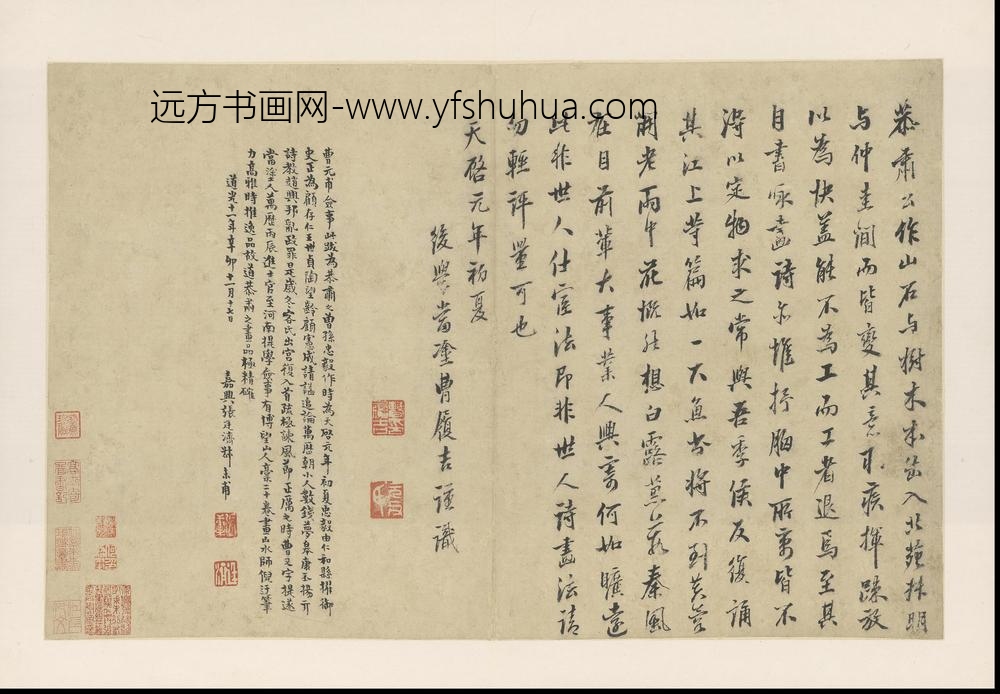 远方书画网-www.yfshuhua.com
恭肅公作山石与樹木本出入北苑叔明
与仲圭间而皆變其意 疾揮疎放
以為快盖能不為工而工者退焉至其
自書咏畫詩亦惟抒胸中所 皆不
得以定物求之常與吾季侯反復誦
其江上等篇如一大魚 將不到芙蓉
湖老雨中花慨然想白露 秦風
在目前輩大事業人興寄何如曠遠
此非世人仕宦法即非世人詩畫法請
勿輕評量可也
天啓元年初夏
後學當塗曹履吉謹識
曹元甫僉事此跋為恭肅之曾孫忠毅作時為天啓元年初夏忠毅由仁和縣擢御
史正為顧存仁王世貞陶望齡顧憲成請諡追論萬厯朝小人數 夢皋康丕揚亓
詩教趙興邦亂政罪是歲冬客氏出宫復入首疏極諫風節正厲之時曹 字提遂
當塗人萬厯丙辰進士官至河南提學僉事有博望山人稾二十卷畫山水師倪迂筆
力高雅時推逸品故道恭肅之畫品極精確
道光十一年辛卯十一月十七日
嘉興張廷濟叔未甫